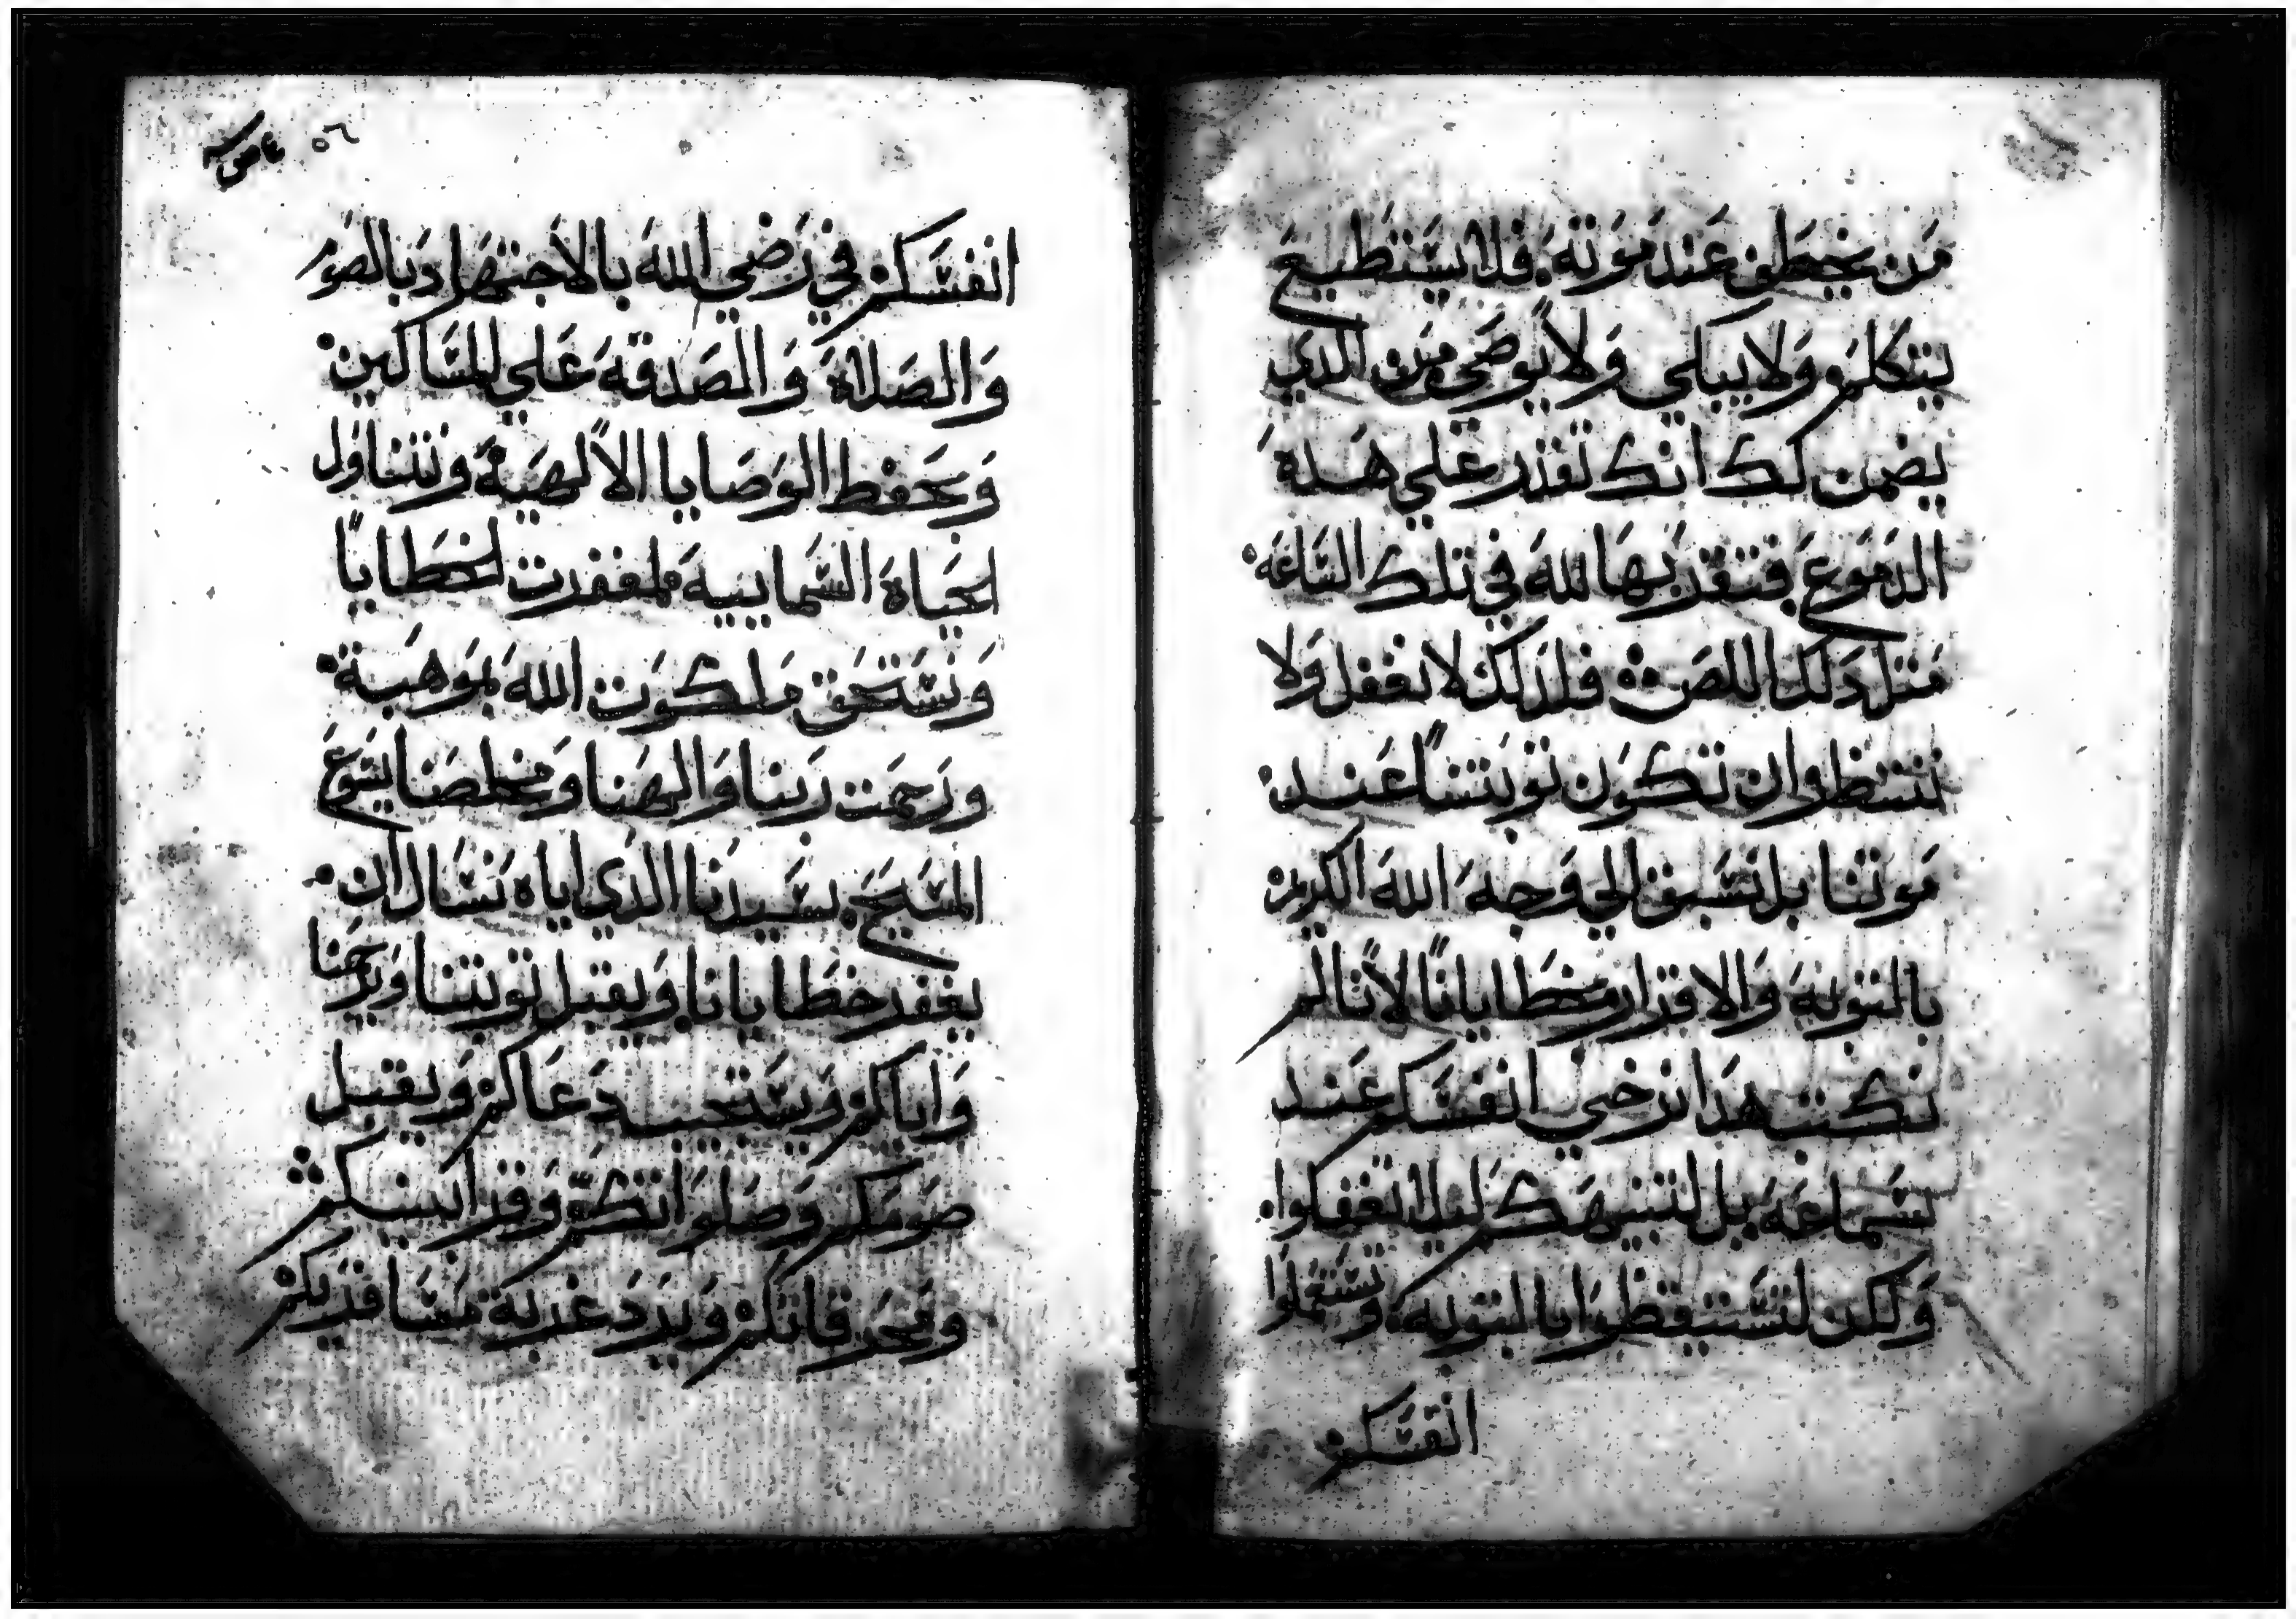 مَن يخطف عَند مَوته فلا يستطيع
يتكلم ولا يبكي ولا يوصَي من الدي
يضمن لك انك تقدر علي هده
الدموع فتقدر بها لله في تلك الساعَة
مَتل دَلك اللص فلدلك لا نغفل ولا
ننتظر ان تكون توبتنا عَند
مَوتنا بل نسبق الي وجه الله الكريم
بالتوبه والاقرار بخطايانا لاننا لم
نكتب هدا نرخي انفسكم عَند
سماعَه بل لتنبيهكم ليلا تغفلوا
ولكن لتستيقظوا بالتوبه وتستعملوا
انفسكم
٥٦
انفسَكم في رَضي الله بالاجتهاد وبالصوم
وَالصَلاة وَالصَدقه عَلي المسَاكين
وَبحفط الوَصَايا الالهيَة ونتناول
الحيَاة السَماييه لمغفرت الخطايا
وَنستحَق مَلكوَت الله بموَهبة
ورَحمت رَبنا وَالهَنا وَمخلصَنا يسَوع
المسَيحَ سَيدنا الدي اياه نسَال ان
يغفر خطايانا ويقبل توبتنا وَيرحمنا
وَاياكم ويسَتجيب دعَاكم وَيقبل
صَومَكم وَصَلوَاتكم وَقرابينكم
ومحرقاتكم وَيرد غربة مسَافريكم